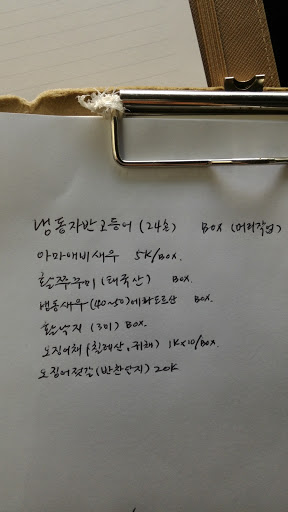 냉동자반고등어 (24손) BOX (머리작업)
아마애비새우 5K/BOX.
활쭈꾸미 (태국산) BOX.
냉동새우 (40~50) 에콰도르산 BOX.
활낙지 (3미) BOX.
오징어채 (칠레산, 귀채) 1K×10/BOX.
오징어젓갈 (반찬단지) 20K